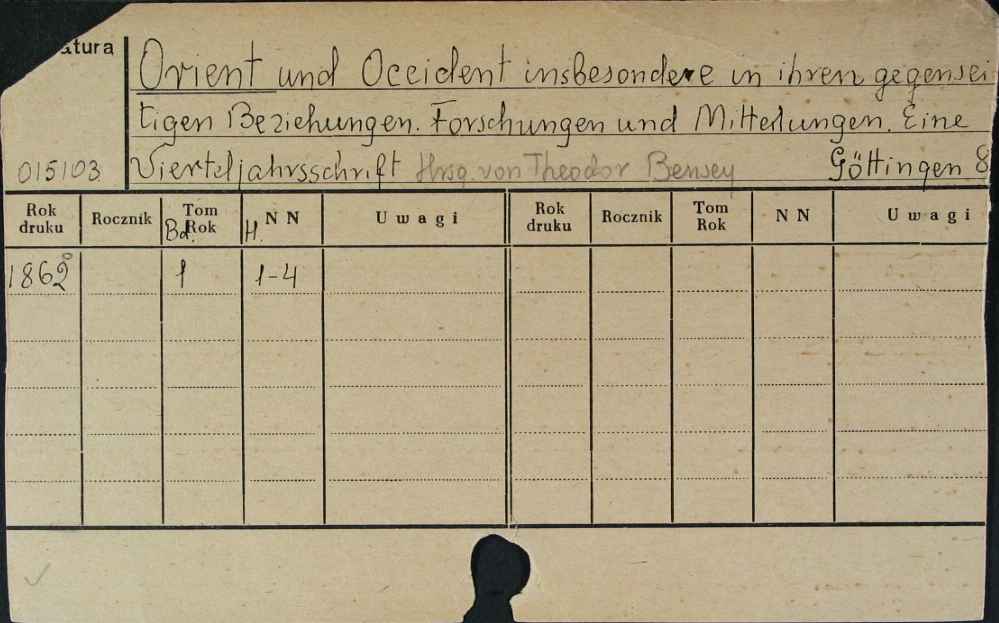 atura
Orient und Occident insbesondere in ihren gegensei
tigen Beziehungen. Forschungen und Mitteilungen. Eine
015103 Vierteljahrsschrift Hrsg. von Theodor Benfey Göttingen 8
Rok druku Rocznik Tom Rok Bd. N N H. Uwagi Rok druku Rocznik Tom Rok N N Uwagi
1862 1 1-4